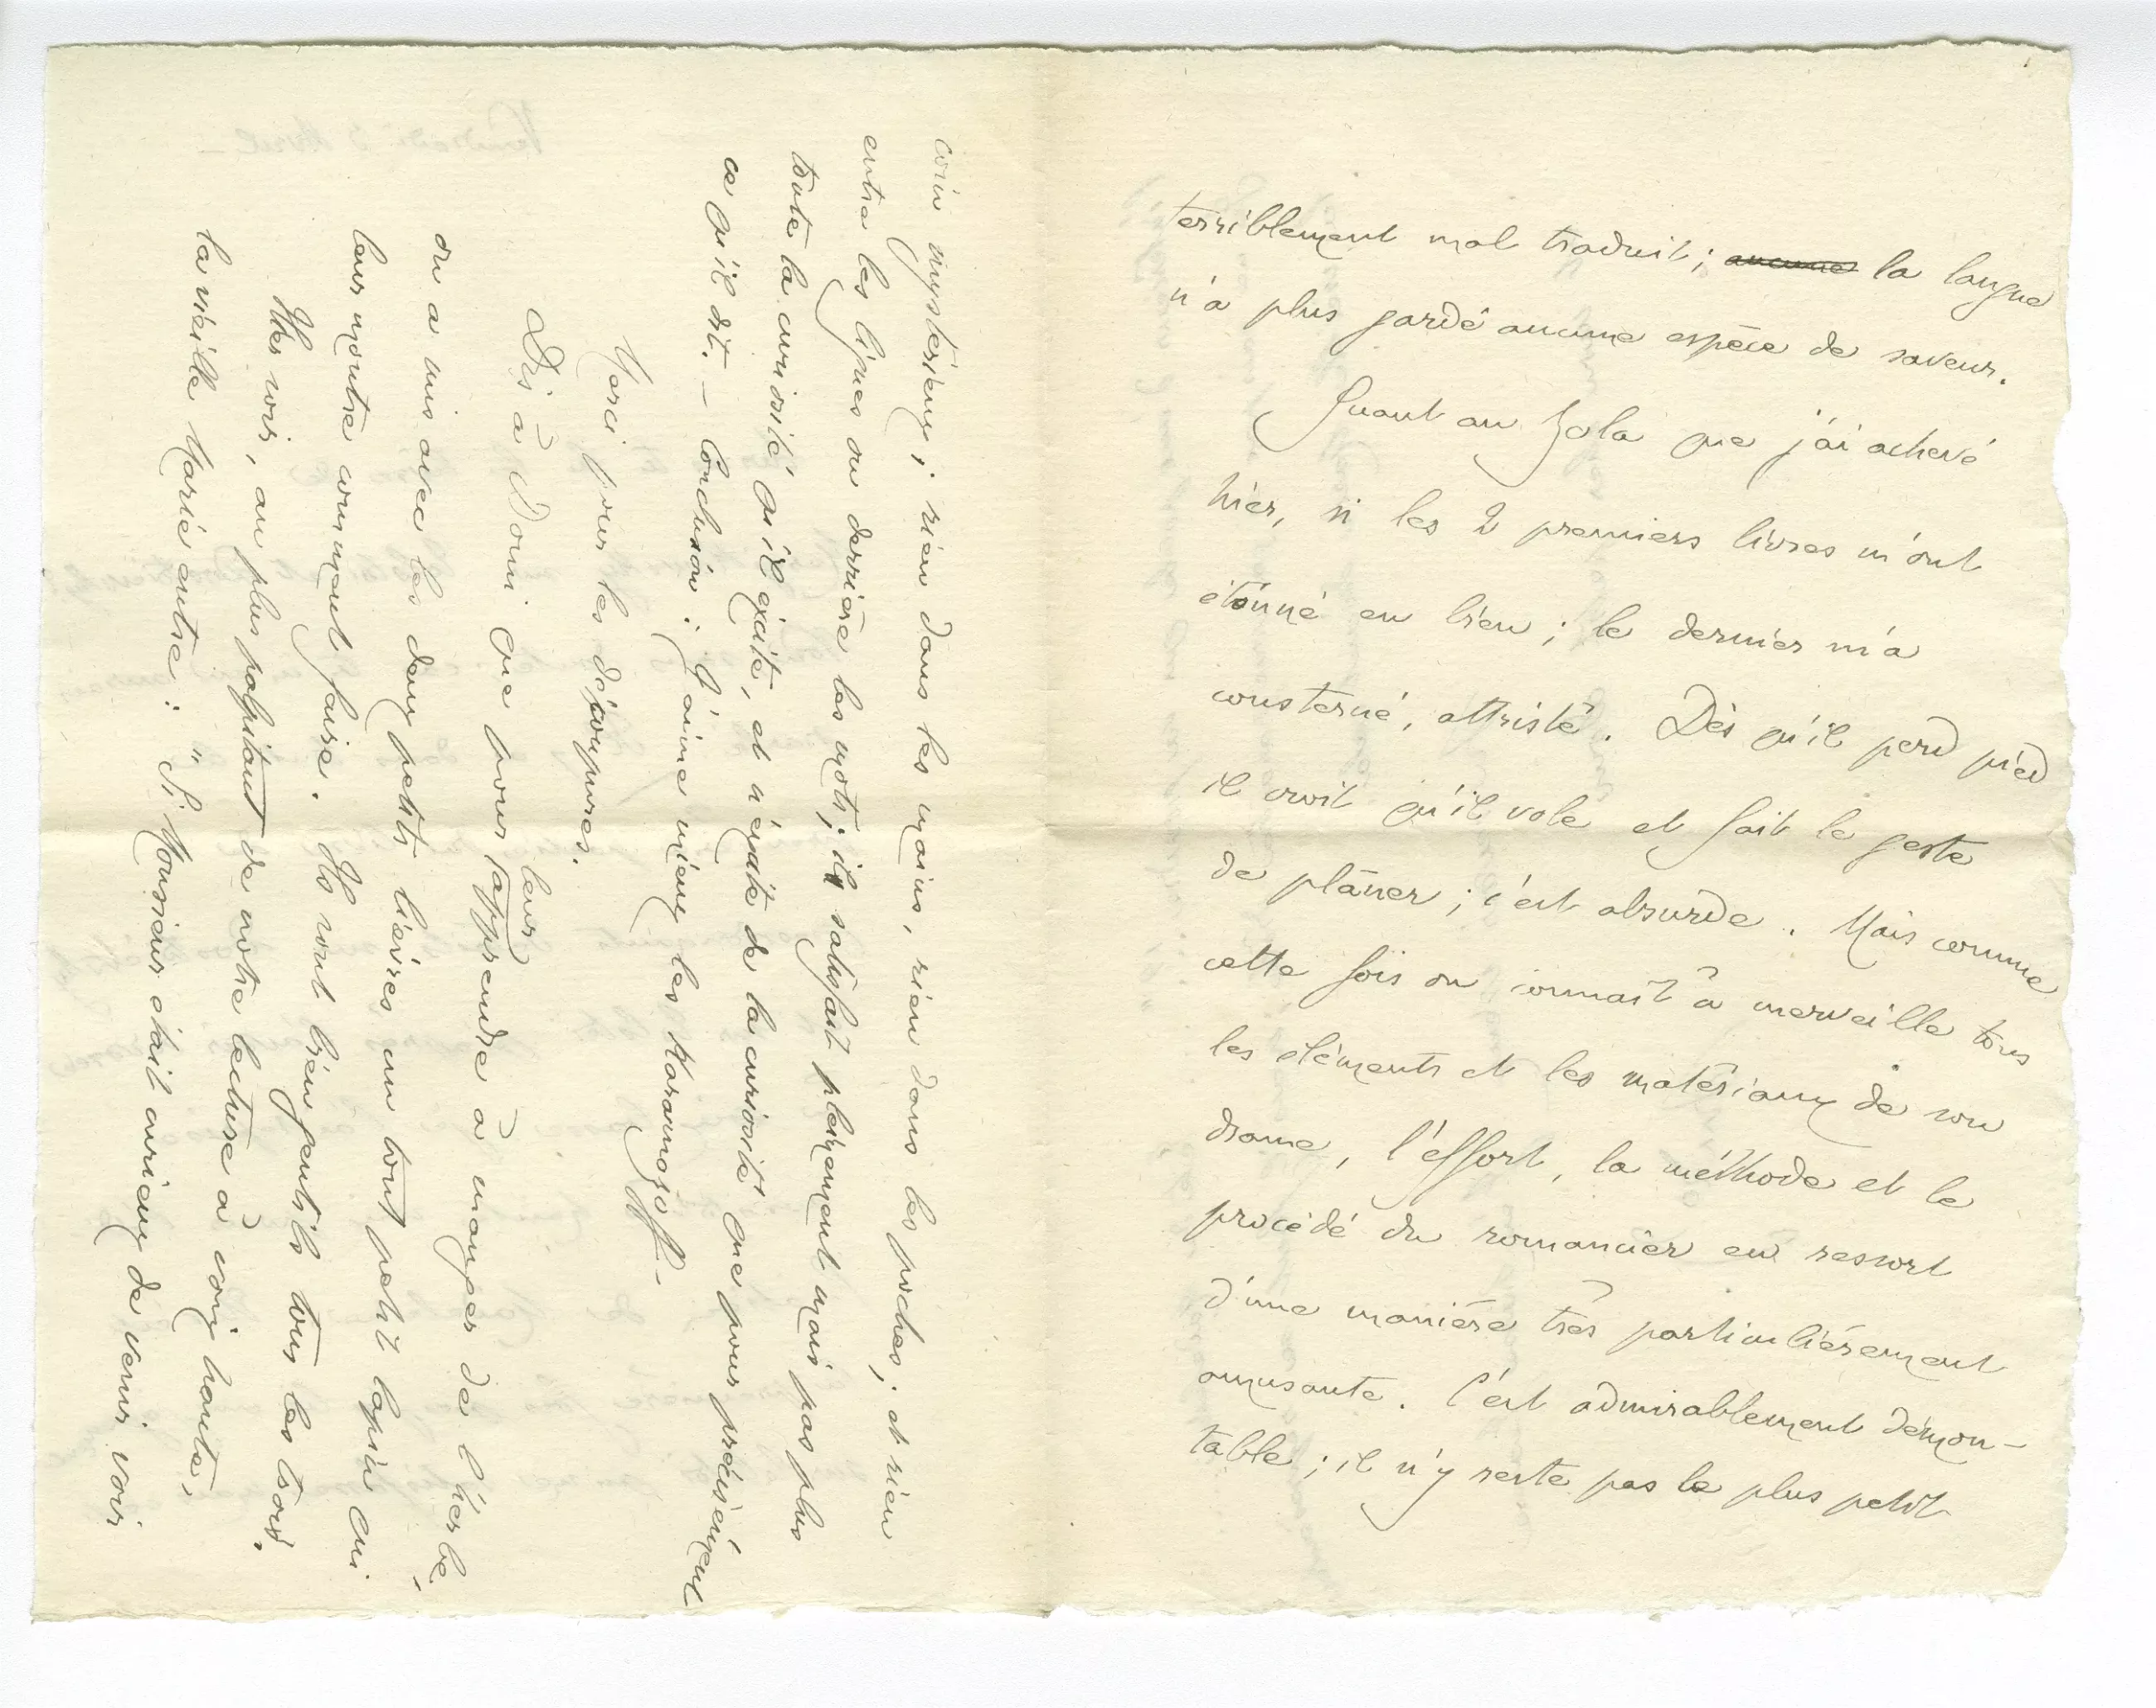 terriblement mal traduit; aucune la langue
n'a plus gardé aucune espèce de saveur.
Quant au Zola que j'ai achevé
hier, si les 2 premiers livres m'ont
étonné en bien; le dernier m'a
consterné, attristé. Dès qu'il perd pied
il croit qu'il vole et fait le geste
de planer; c'est absurde. Mais comme
cette fois on connaît à merveille tous
les éléments et les matériaux de son
drame, l'effort, la méthode et le
procédé du romancier en ressort
d'une manière très particulièrement
amusante. C'est admirablement démon-
table; il n'y reste pas le plus petit
coin mystérieux; rien dans les mains, rien dans les poches; et rien
entre les lignes ou derrière les mots; il satisfait pleinement mais pas plus
toute la curiosité qu'il excite, et n'excite de la curiosité que pour précisément
ce qu'il dit. — Conclusion: j'aime mieux les Karamazoff —
Merci pour les découpures.
Dis à Domi que pour leur apprendre à manger de l'herbe,
on a mis avec les deux petits lièvres un tout petit lapin qui
leur montre comment faire. Ils sont bien gentils tous les trois.
Hier soir, au plus palpitant de notre lecture à voix haute,
la vieille Marie entre: "Si Monsieur était curieux de venir voir